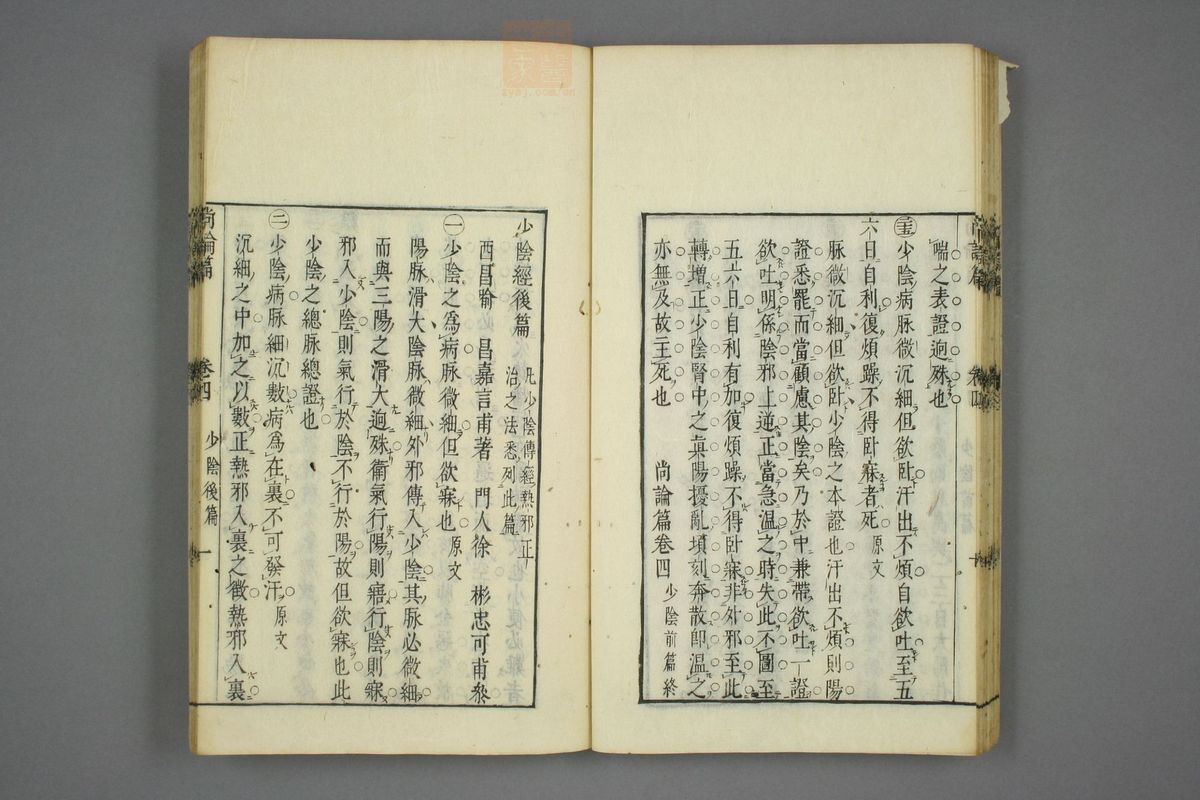 喘之表證迥殊也
㊄少陰病脉微沉細但欲臥汗出不煩自欲吐至五
六日自利復煩躁不得臥寐者死 原文
脉微沉細但欲臥少陰之本證也汗出不煩則陽
證悉罷而當顧慮其陰矣乃於中兼帶欲吐一證
欲吐明係陰邪上逆正當急溫之時失此不圖至
五六日自利有加復煩躁不得臥寐非外邪至此
轉增正少陰腎中之真陽擾亂頃刻奔散即溫之
亦無及故主死也 尚論篇卷四 少陰前篇終
少陰經後篇 凡少陰傳經熱邪正
治之法悉列此篇
西昌喻 昌嘉言甫著 門人徐 彬忠可甫叅
㊀少陰之爲病脉微細但欲寐也 原文
陽脉滑大陰脉微細外邪傳入少陰其脉必微細
而與三陽之滑大迥殊衛氣行陽則寤行陰則寐
邪入少陰則氣行於陰不行於陽故但欲寐也此
少陰之總脉總證也
㊁少陰病脉細沉數病爲在裏不可發汗 原文
沉細之中加之以數正熱邪入裏之徵熱邪入裏
尚論篇 卷四 少陰後篇 一
zyej.com/cn